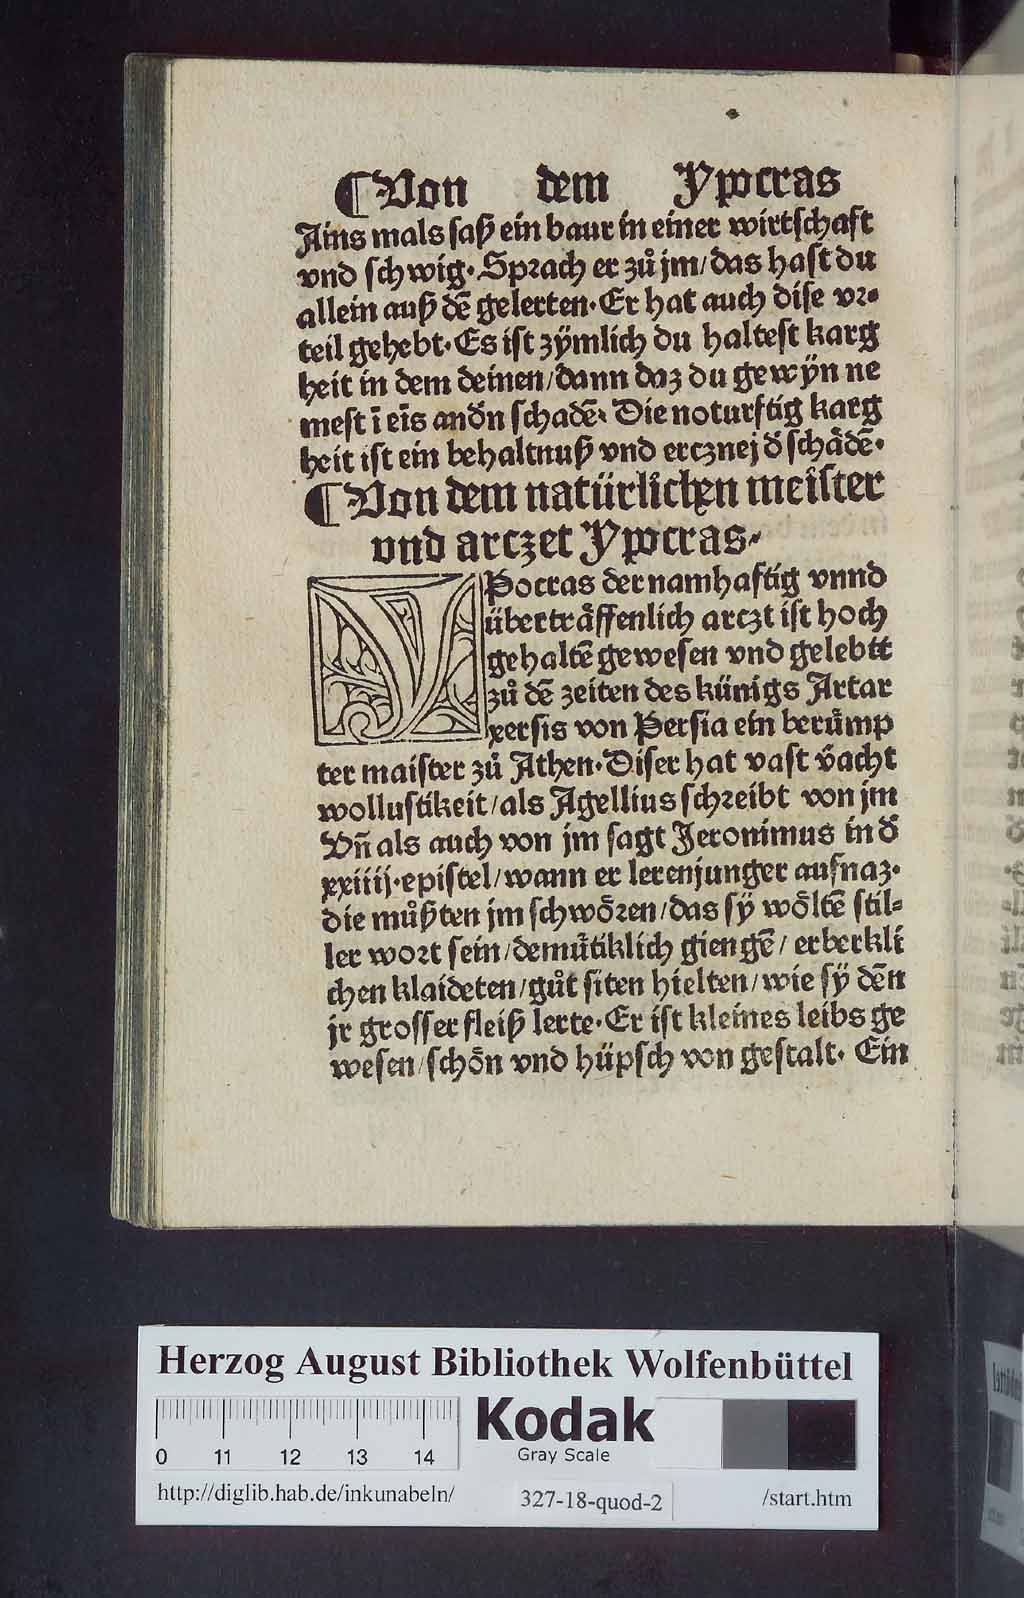 ¶Von dem Ypocras
Ains mals saß ein baur in einer wirtschaft
vnd schwig. Sprach er zů jm/das hast du
allein auß dē gelerten. Er hat auch dise vr⸗
teil gehebt. Es ist zÿmlich du haltest karg
heit in dem deinen/dann daz du gewÿn ne
mest ī eīs andn̄ schadē. Die noturftig karg
heit ist ein behaltnuß vnd ercznej d̕ schådē.
¶Von dem natürlichen meister
vnd arczet Ypocras.
YPocras der namhaftig vnnd
überträffenlich arczt ist hoch
gehaltē gewesen vnd gelebtt
zů dē zeiten des künigs Artar
xersis von Persia ein berůmp
ter maister zů Athen. Diser hat vast v̕acht
wollustikeit/als Agellius schreibt von jm
Vn̄ als auch von jm sagt Jeronimus in d̕
xxiiij. epistel/wann er lerenjunger aufnaz.
die můßten jm schwören/das sÿ wöltē stil⸗
ler wort sein/demůtiklich giengē/erberkli
chen klaideten/gůt siten hielten/wie sÿ dēn
jr grosser fleiß lerte. Er ist kleines leibs ge
wesen/schön vnd hüpsch von gestalt. Ein
Herzog August Bibliothek Wolfenbüttel
0 11 12 13 14
Kodak
Gray Scale
http://diglib.hab.de/inkunabeln/ 327-18-quod-2 /start.htm